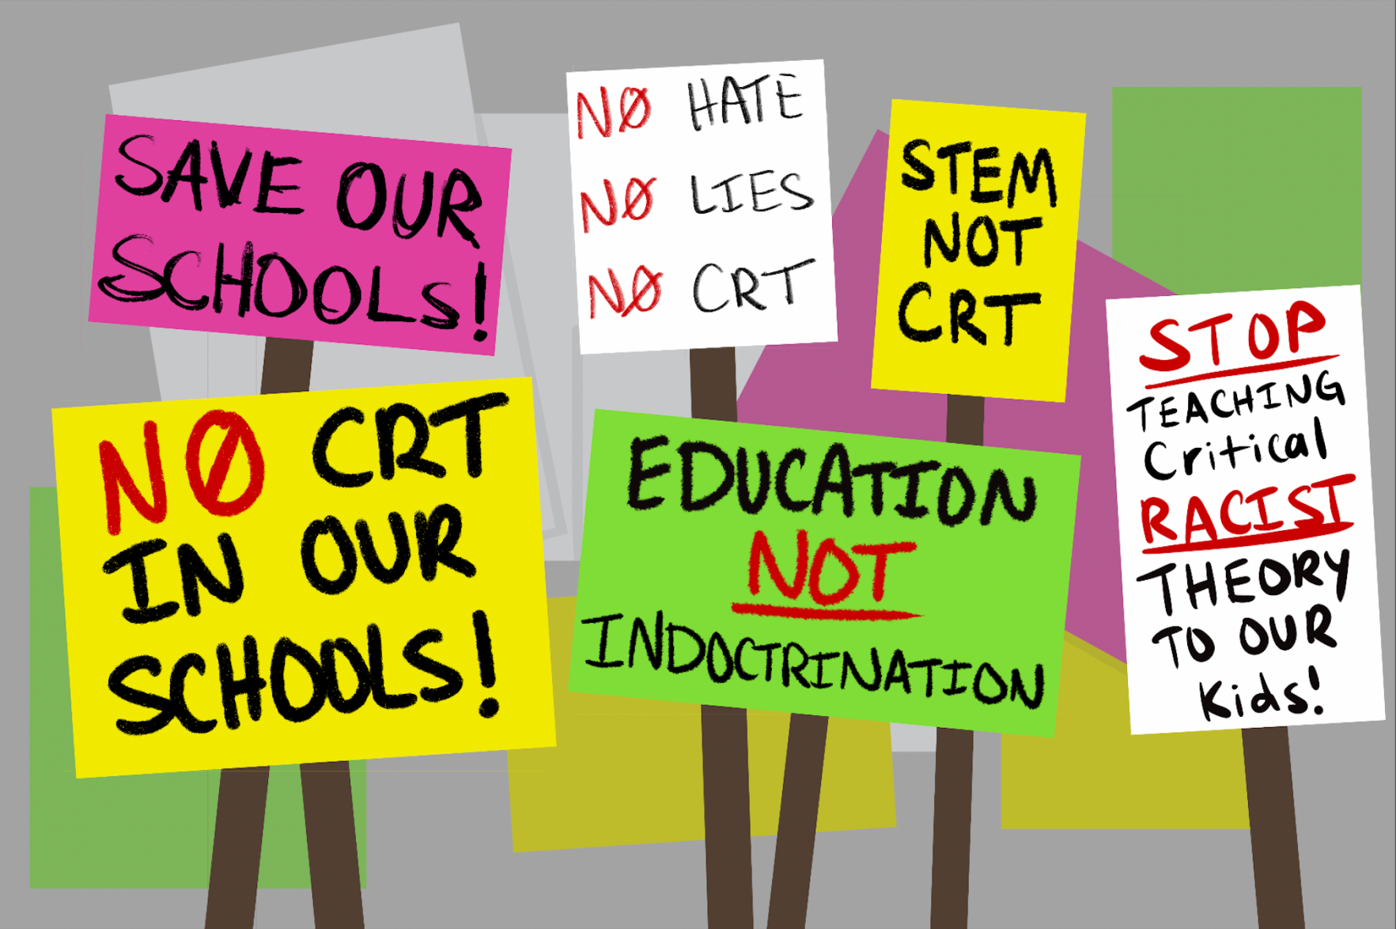 SAVE OUR
SCHOOLS!
NO HATE
NO LIES
NO CRT
STEM
NOT
CRT
STOP
TEACHING
Critical
RACIST
THEORY
TO OUR
Kids!
NO CRT
IN OUR
SCHOOLS!
EDUCATION
NOT
INDOCTRINATION